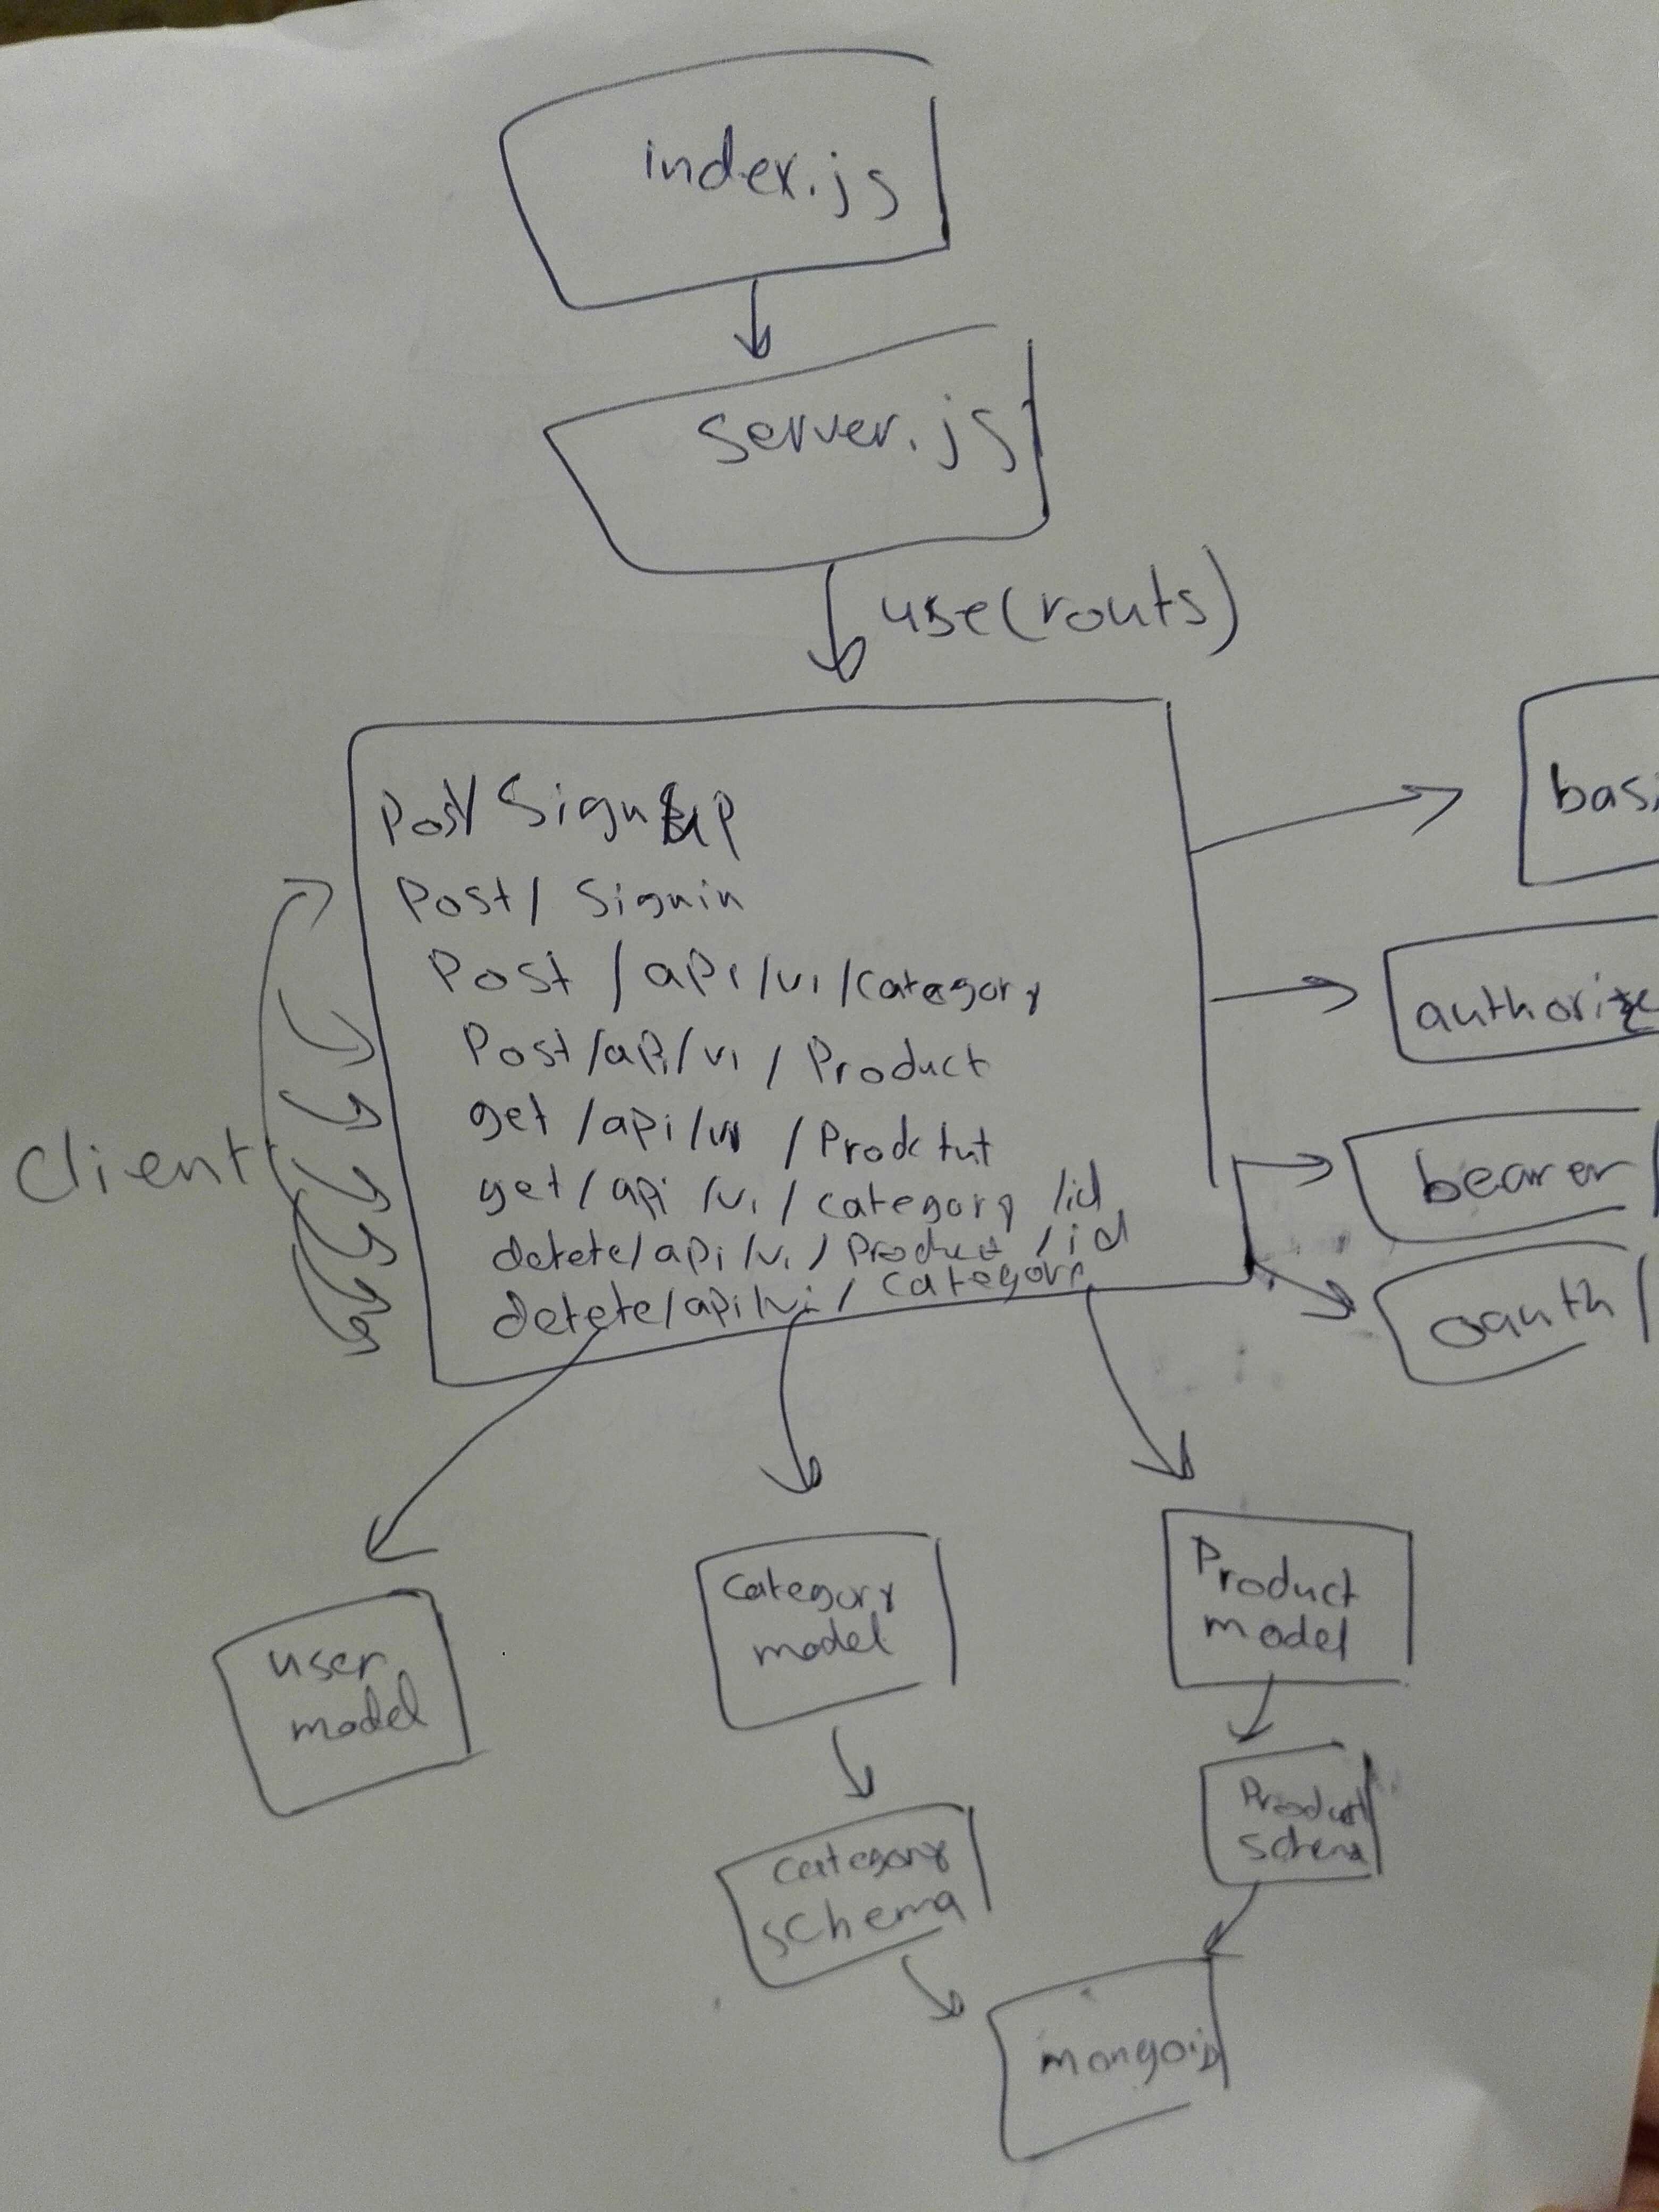 index.js
server.js
use(routs)
Post/ Signup
Post/ Signin
Post /api/v1/category
Post/api/v1/Product
get/api/v1/Prodctut
get/api/v1/category/id
detete/api/v1/Product/id
detete/api/v1/category
Client
basi
authorize
bearer
oauth
user
model
category
model
Product
model
category
schema
Product
schema